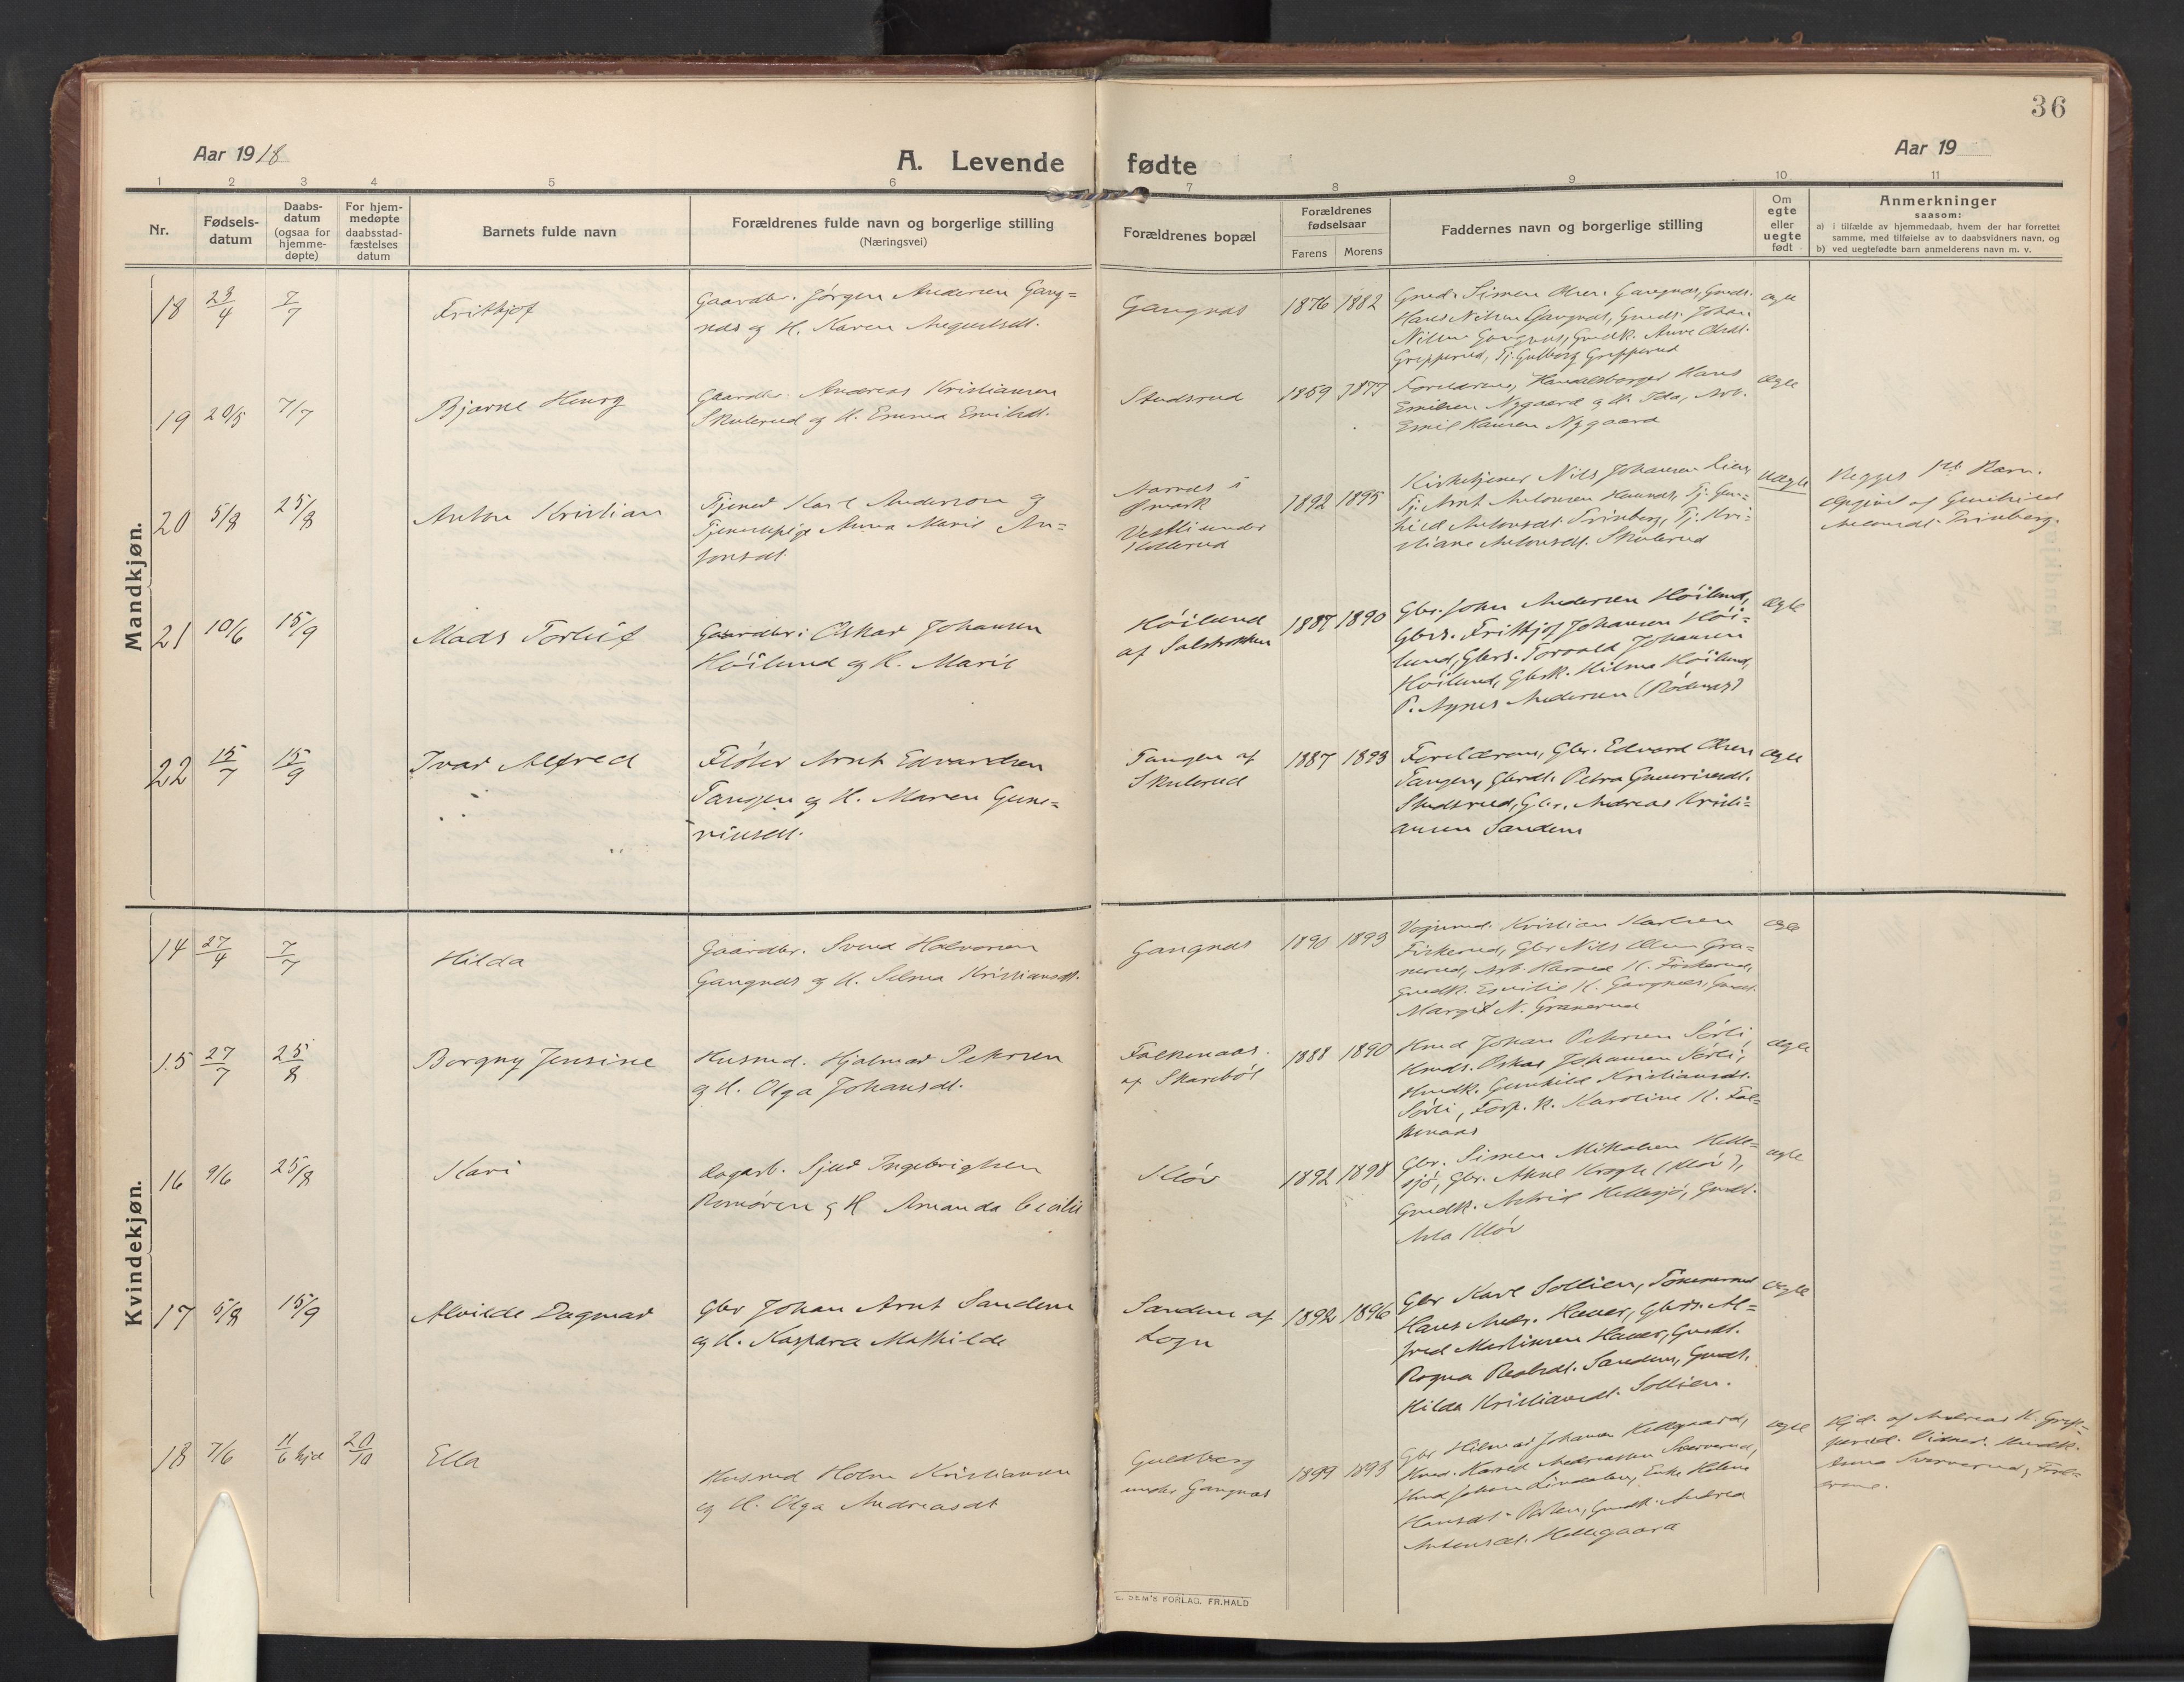 36
Aar 1918
A. Levende fødte
Aar 19
1 2 3 4 5 6 7 8 9 10 11
Nr.
Fødsels-
datum
Daabs-
datum
(ogsaa for
hjemme-
døpte)
For hjem-
medøpte
daabsstad-
fæstelses
datum
Barnets fulde navn
Forældrenes fulde navn og borgerlige stilling
(Næringsvei)
Forældrenes bopæl
Forældrenes
fødselsaar
Farens Morens
Faddernes navn og borgerlige stilling
Om
egte
eller
uegte
født
Anmerkninger
saasom:
a) i tilfælde av hjemmedaab, hvem der har forrettet
samme, med tilføielse av to daabsvidners navn, og
b) ved uegtefødte barn anmelderens navn m. v.
Mandkjøn.
18
7/7
Frithjof
Gaardbr. Jørgen Andersen Gang=
næs og H. Karen Augustsdt.
Gangnæs
1876 1882
Gmd. Simen Olsen Gangnæs, Gmds.
Hans Nilsen Gangnæs, Gmds. Johan
Nilsen Gangnæs, Gmdk. Anne Olsdt.
Gripperud, Tj. Gulborg Gripperud
ægte
19 20/5 7/7
Bjarne Henry
Gaardbr. Andreas Kristiansen
Skulerud og H. Emma Emilsdt.
Studsrud
1859 1877
Forældrene, Handelsborger Hans
Emilsen Nygaard og H. Ida, Arb.
Emil Hansen Nygaard
ægte
20 5/8 25/8
Anton Kristian
Tjener Karl Anderson og
Tjenestepige Anna Marie An=
tonsdt.
i
Vestli under
Kollerud
1892 1895
Kirketjener Nils Johansen Lien,
Tj. Arnt Antonsen, Tj. Gun=
hild Antonsdt. Trinborg, Tj. Kri=
stiane Antonsdt. Skulerud
uægte
Begges 1ste Barn.
Opgivet af Gunhild
Antonsdt. Trinborg.
21 10/6 15/9
Mads Torleif
Gaardbr. Oskar Johansen
Høilund og H. Marie
Høilund
af
1887 1890
Gbr. John Andersen Høilund,
Gbrs. Frithjof Johansen Høi=
lund, Gbrs. Torvald Johansen
Høilund, Gbrk. Hilma Høilund,
P. Agnes Andersen (Rødenæs)
ægte
22 15/7 15/9
Ivar Alfred
Fløter Arnt Edvardsen
Tangen og H. Maren Gune=
riusdt.
Tangen af
Skulerud
1887 1893
Forældrene, Gbr. Edvard Olsen
Tangen, Gbrdt. Petra Guneriusdt.
Studsrud, Gbr. Andreas Kristi=
ansen Sandem
ægte
Kvindekjøn.
14 27/4 7/7
Hilda
Gaardbr. Svend Halvorsen
Gangnæs og H. Selma Kristiansdt.
Gangnæs
1890 1893
Kristian Karlsen
Fiskerud, Gbr Nils Olsen Gra=
nerud, Arb. Harald K. Fiskerud,
Gmdk. Emilie H. Gangnæs, Gmdt.
Margit N. Granerud
ægte
15 27/7 25/8
Borgny Jensine
Husmd. Hjalmar Petersen
og H. Olga Johansdt.
Falkenaas
af Skarebøl
1888 1890
Hmd Johan Petersen Sørli,
Hmds. Oskar Johansen Sørli,
Hmdk. Gunhild Kristiansdt.
Sørli, Karoline H. Fal=
kenaas
ægte
16 9/6 25/8
Kari
Ingebrigtsen
Romøren og H Amanda Cecilie
Kløv
1892 1898
Gbr. Simen Mikalsen Helle=
sjø, Gbr. (Kløv),
Gmdk. Astrid Hellesjø, Gmdt.
Kløv
ægte
17 5/8 15/9
Alvilde Dagmar
Gbr Johan Arnt Sandem
og H. Kaspara Mathilde
Sandem af
Sogn
1892 1896
Gbr Karl Sollien,
Hans Andr. Haver, Gbrs. Al=
fred Martinsen Haver, Gmdt.
Ragna Sandem, Gmdt.
Hilda Kristiansdt. Sollien.
ægte
18 7/6 11/6 hjd 20/10
Ella
Husmd Holm Kristiansen
og H. Olga Andreasdt
Guldberg
under Gangnæs
1899 1893
Gbr Hilmar Johansen Hellegaard,
Hmd. Harald Andreassen Sververud,
Hmd Johan Lindalen, Enke Helene
Hansdt. Gmdk. Andrea
Antonsdt. Hellegaard
ægte
Hjd. af Andreas K. Grip=
perud. Vidner: Hmdk.
Anna Sververud, Foræl=
drene.
FORLAG. FR. HALD